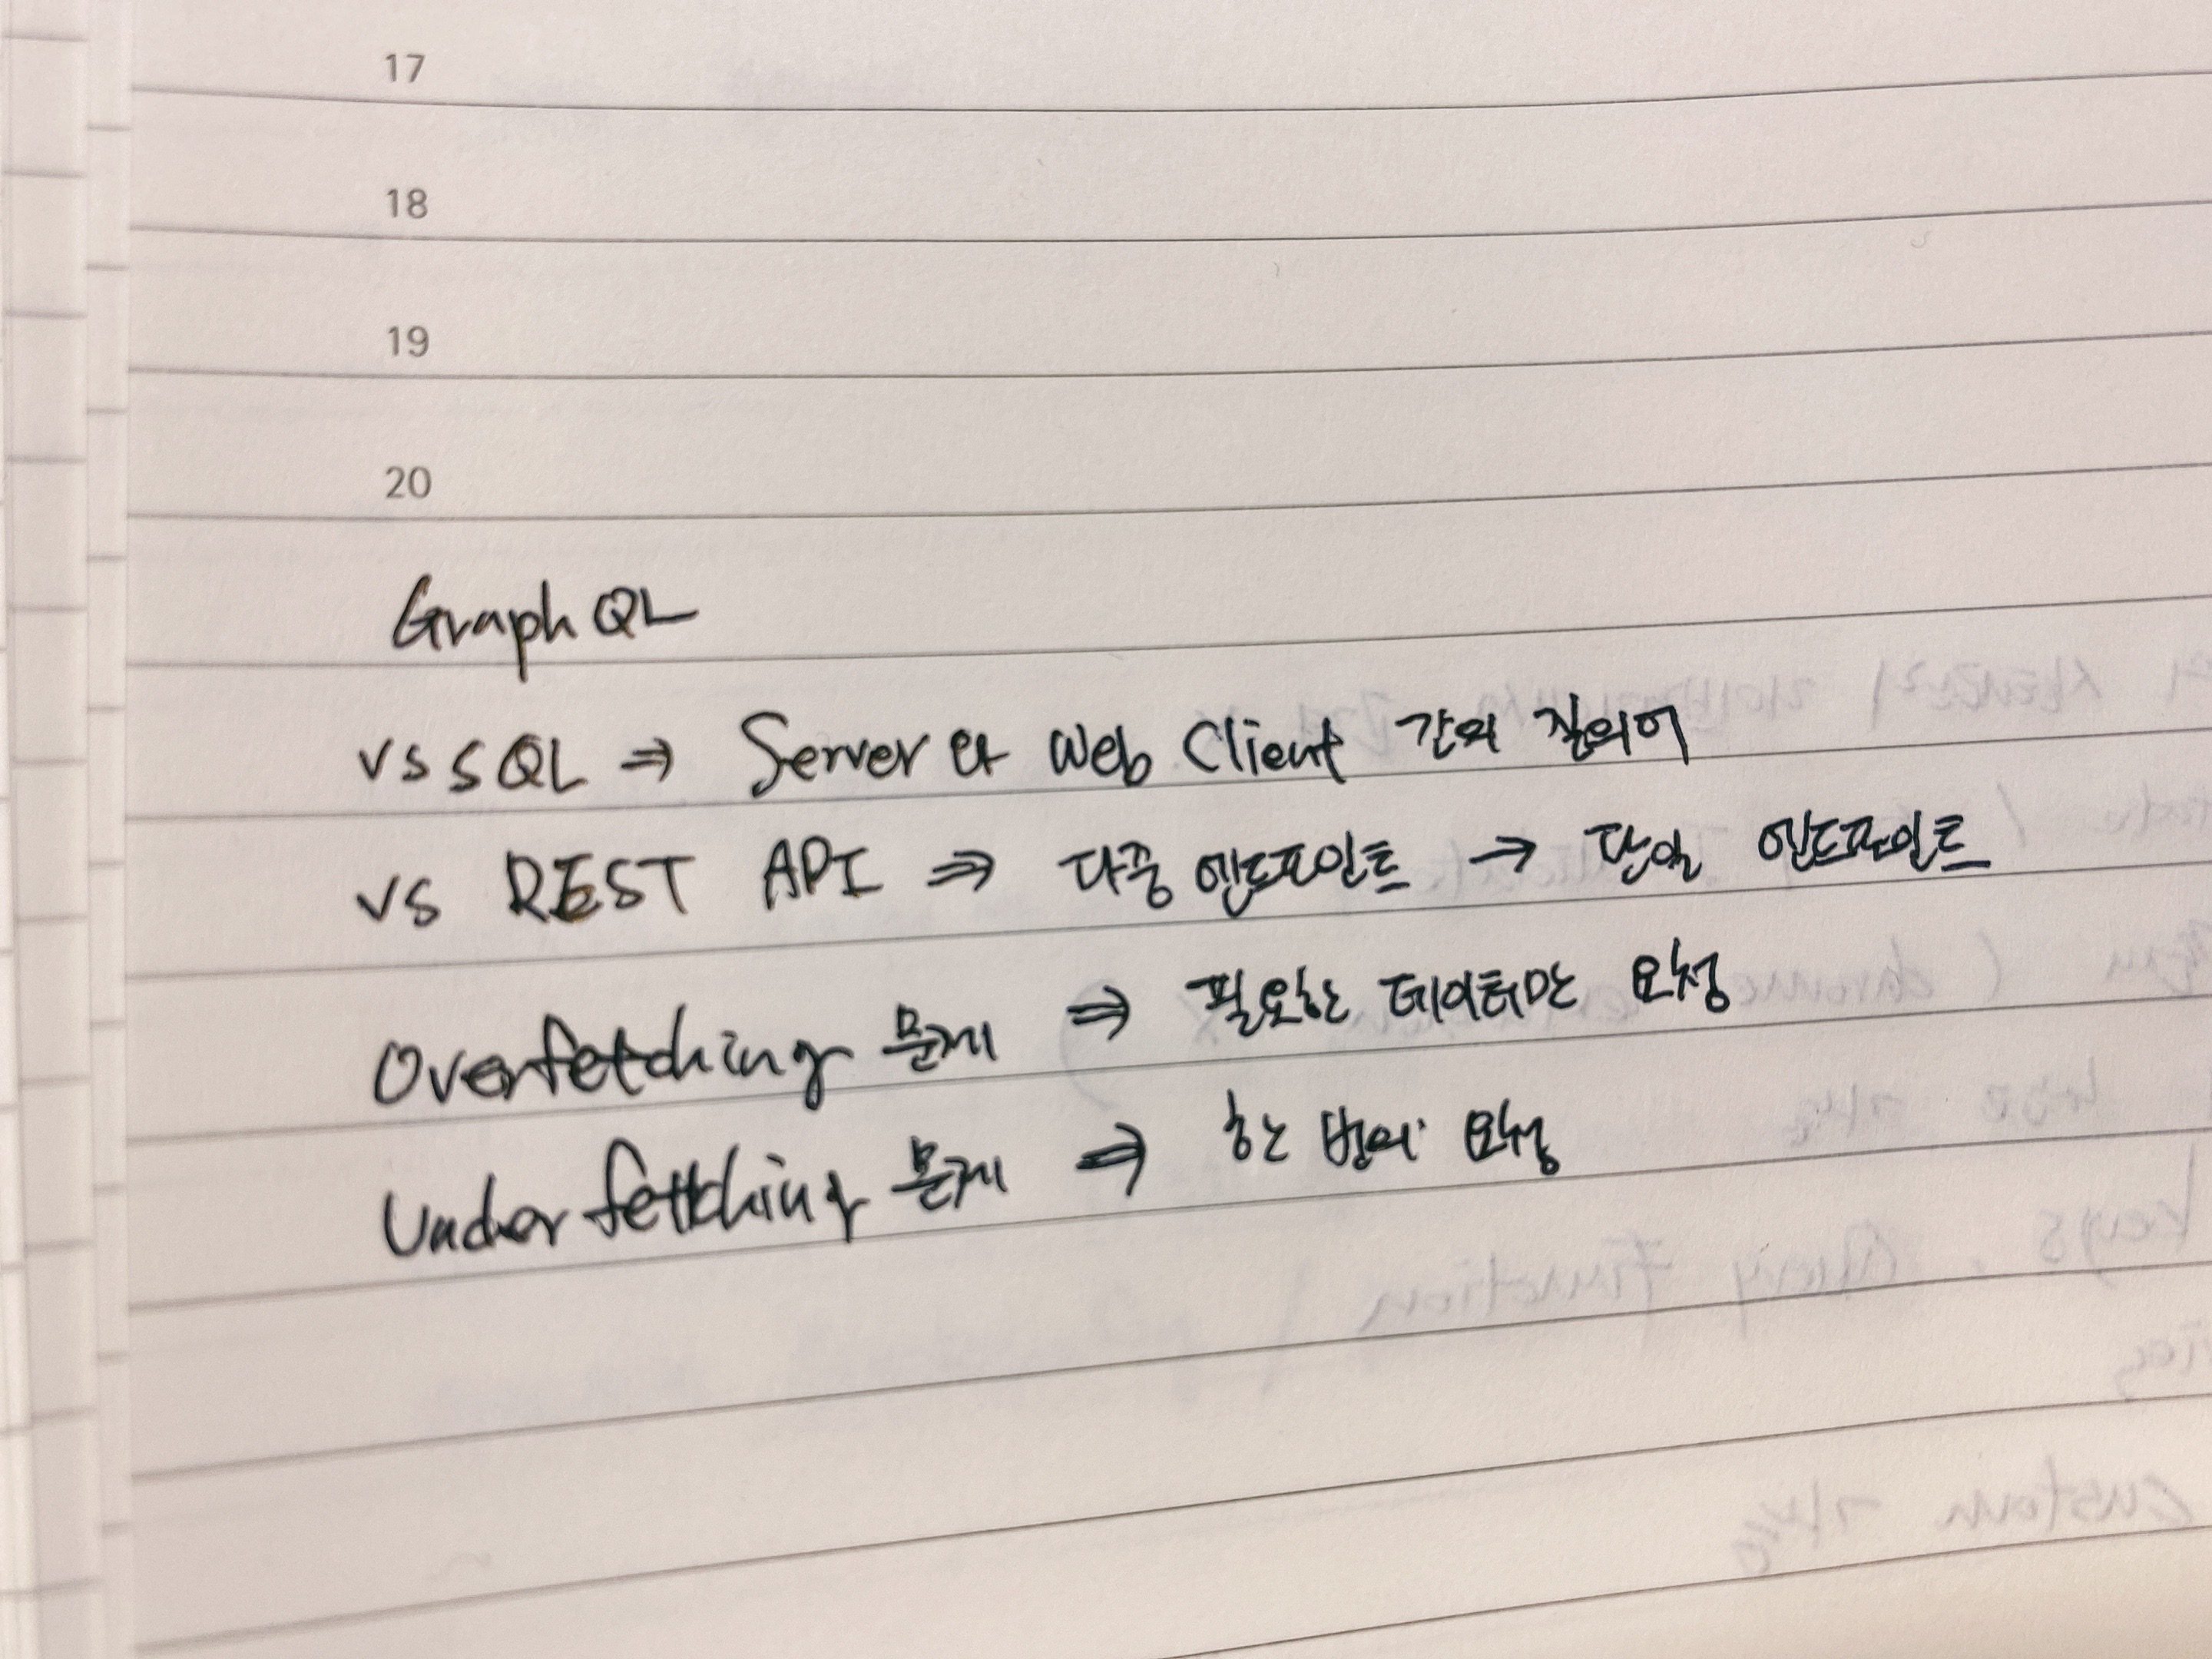 17
18
19
20
Graph QL
vs SQL ⇒ Server와 Web Client 간의 질의어
vs REST API ⇒ 다중 엔드포인트 → 단일 엔드포인트
Overfetching 문제 ⇒ 필요한 데이터만 요청
Under fetching 문제 ⇒ 한 번의 요청